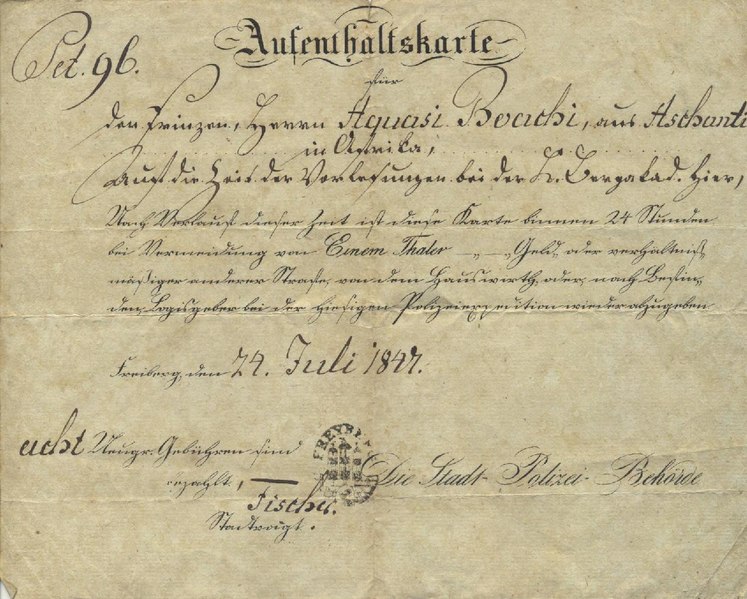 Pet. 96.
Aufenthaltskarte
für
den Prinzen, Herrn Aquasi Boachi, aus Aschanti
in Afrika,
Auf die Zeit der Vorlesungen bei der K. Bergakad. hier,
Nach Verlauf dieser Zeit ist diese Karte binnen 24 Stunden
bei Vermeidung von Einem Thaler — — Geld, oder verhältniß-
mäßiger anderer Strafe, von dem Hauswirth, oder, nach Befin-
den, Logisgeber bei der hiesigen Polizeiexpedition wiederabzugeben
Freiberg, den 24. Juli 1847.
acht Neugr. Gebühren sind
bezahlt,
FREYB
Die Stadt-Polizei-Behörde
Fischer.
Stadtvoigt.